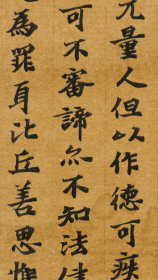 量人但以作德可疾
可不審諦尔不知法
為罪耳比丘善思惟